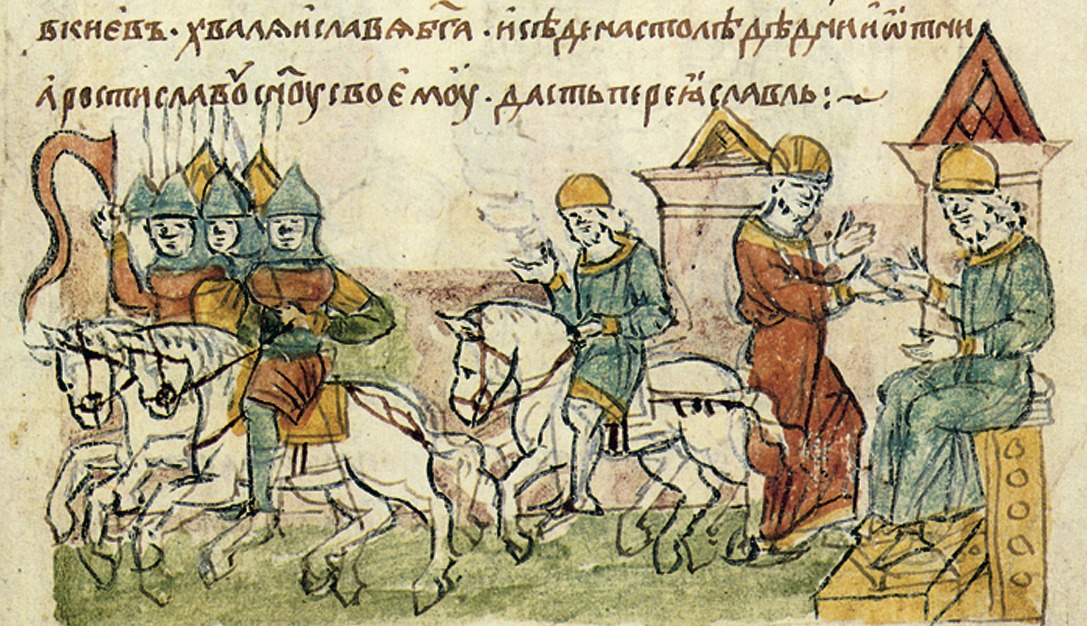 вкиевъ · хвалѧиславѧб҃га · исѣденастолѣдѣдн҃иѿтн҃и
аростиславоусн҃оусвоемоу · дастьпереꙗславль :~